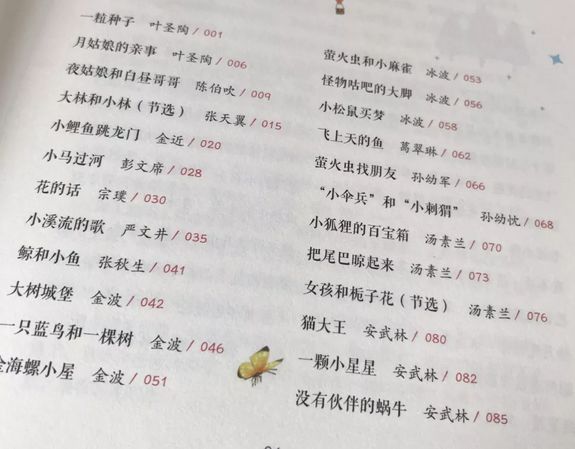 一粒种子 叶圣陶 / 001
月姑娘的亲事 叶圣陶 / 006
夜姑娘和白昼哥哥 陈伯吹 / 009
大林和小林（节选） 张天翼 / 015
小鲤鱼跳龙门 金近 / 020
小马过河 彭文席 / 028
花的话 宗璞 / 030
小溪流的歌 严文井 / 035
鲸和小鱼 张秋生 / 041
大树城堡 金波 / 042
一只蓝鸟和一棵树 金波 / 046
金海螺小屋 金波 / 051
萤火虫和小麻雀 冰波 / 053
怪物咕吧的大脚 冰波 / 056
小松鼠买梦 冰波 / 058
飞上天的鱼 葛翠琳 / 062
萤火虫找朋友 孙幼军 / 066
“小伞兵”和“小刺猬” 孙幼忱 / 068
小狐狸的百宝箱 汤素兰 / 070
把尾巴晾起来 汤素兰 / 073
女孩和栀子花（节选） 汤素兰 / 076
猫大王 安武林 / 080
一颗小星星 安武林 / 082
没有伙伴的蜗牛 安武林 / 085